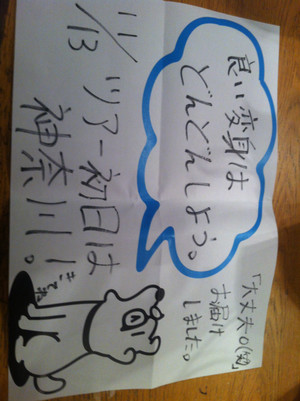 良い変身は
どんどんしよう。
「大丈夫。(笑)」
お届け
しました。
11/13 ツアー初日は
神奈川。
きてね